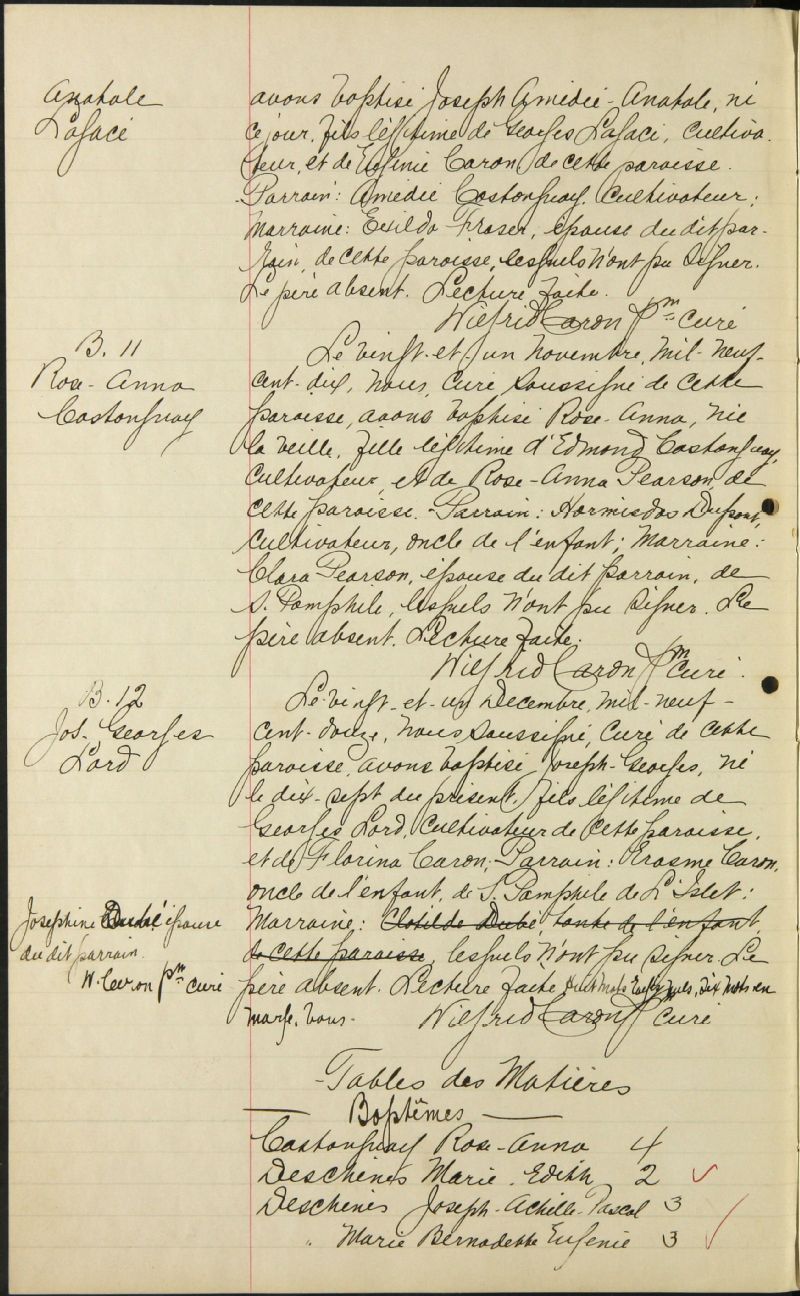 Anatole
Laface
avons baptisé Joseph Amédée-Anatole, né
ce jour, fils légitime de Georges Laface, cultiva-
teur, et de Eugénie Caron, de cette paroisse.
Parrain: Amédée Castonguay, cultivateur;
Marraine: Exilda Fraser, épouse du dit par-
rain, de cette paroisse, lesquels n'ont pu signer.
Le père absent. Lecture faite.
Wilfrid Caron Ptre curé
B. 11
Rose-Anna
Castonguay
Le vingt-et-un Novembre, mil-neuf-
cent-dix, nous, curé soussigné de cette
paroisse, avons baptisé Rose-Anna, née
la veille, fille légitime d'Edmond Castonguay,
cultivateur, et de Rose-Anna Pearson, de
cette paroisse. Parrain: Hormisdas Dupont,
cultivateur, oncle de l'enfant; Marraine:
Clara Pearson, épouse du dit parrain, de
S. Pamphile, lesquels n'ont pu signer. Le
père absent. Lecture faite.
Wilfrid Caron Ptre curé.
B. 12
Jos. Georges
Lord
Le vingt-et-un Decembre, mil-neuf-
cent-douze, nous soussigné, curé de cette
paroisse, avons baptisé Joseph-Georges, né
le dix-sept du présent, fils légitime de
Georges Lord, cultivateur de cette paroisse,
et de Florina Caron. Parrain: Erasme Caron,
oncle de l'enfant, de S. Pamphile de L'Islet;
Marraine: Clotilde Dubé, tante de l'enfant,
de cette paroisse, lesquels n'ont pu signer. Le
père absent. Lecture faite. Huit mots nuls, six mots en
marge, bons.
Wilfrid Caron Ptre curé
Josephine épouse
du dit parrain.
W. Caron Ptre curé
Tables des Matières
Baptêmes
Castonguay Rose-Anna 4
Deschenes Marie. Edith 2
Deschenes Joseph-Achille-Pascal 3
" Marie Bernadette Eugenie 3